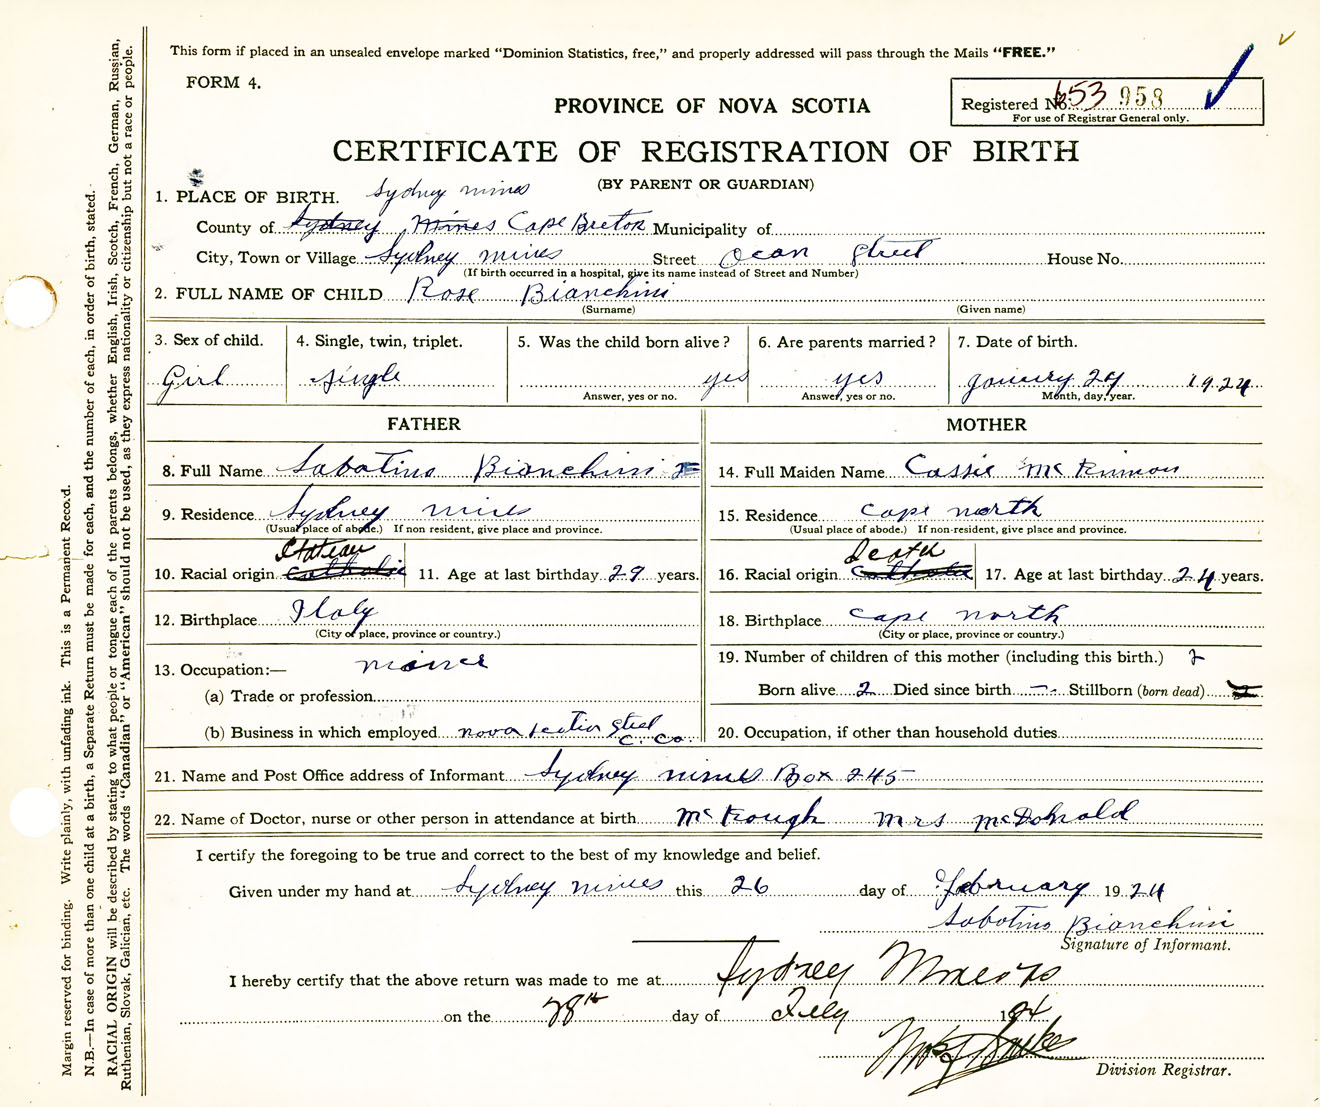 This form if placed in an unsealed envelope marked "Dominion Statistics, free," and properly addressed will pass through the Mails "FREE."
FORM 4.
PROVINCE OF NOVA SCOTIA
Registered No. 653 958
For use of Registrar General only.
CERTIFICATE OF REGISTRATION OF BIRTH
(BY PARENT OR GUARDIAN)
1. PLACE OF BIRTH. Sydney mines
County of Sydney Mines Cape Breton Municipality of
City, Town or Village Sydney mines Street Ocean Street House No.
(If birth occurred in a hospital, give its name instead of Street and Number)
2. FULL NAME OF CHILD Rose Bianchini
(Surname) (Given name)
3. Sex of child. 4. Single, twin, triplet. 5. Was the child born alive? 6. Are parents married? 7. Date of birth.
Girl single yes yes January 24 1924
Answer, yes or no. Answer, yes or no. Month, day, year.
FATHER MOTHER
8. Full Name Sabatino Bianchini 14. Full Maiden Name Cassie McKinnon
9. Residence Sydney mines 15. Residence Cape north
(Usual place of abode.) If non resident, give place and province. (Usual place of abode.) If non-resident, give place and province.
10. Racial origin Catholic 11. Age at last birthday 29 years. 16. Racial origin Catholic 17. Age at last birthday 24 years.
12. Birthplace Italy 18. Birthplace Cape north
(City or place, province or country.) (City or place, province or country.)
13. Occupation:— miner 19. Number of children of this mother (including this birth.) 2
(a) Trade or profession Born alive 2 Died since birth — Stillborn (born dead)
(b) Business in which employed nova scotia Steel C. Co. 20. Occupation, if other than household duties
21. Name and Post Office address of Informant Sydney mines Box 245
22. Name of Doctor, nurse or other person in attendance at birth McKeough Mrs McDonald
I certify the foregoing to be true and correct to the best of my knowledge and belief.
Given under my hand at Sydney mines this 26 day of February 1924
Sabotino Bianchini
Signature of Informant.
I hereby certify that the above return was made to me at Sydney Mines
on the 28th day of 1924
Division Registrar.
Margin reserved for binding. Write plainly, with unfading ink. This is a Permanent Record.
N.B.—In case of more than one child at a birth, a Separate Return must be made for each, and the number of each, in order of birth, stated.
RACIAL ORIGIN will be described by stating to what people or tongue each of the parents belongs, whether English, Irish, Scotch, French, German, Russian,
Ruthenian, Slovak, Galician, etc. The words "Canadian" or "American" should not be used, as they express nationality or citizenship but not a race or people.